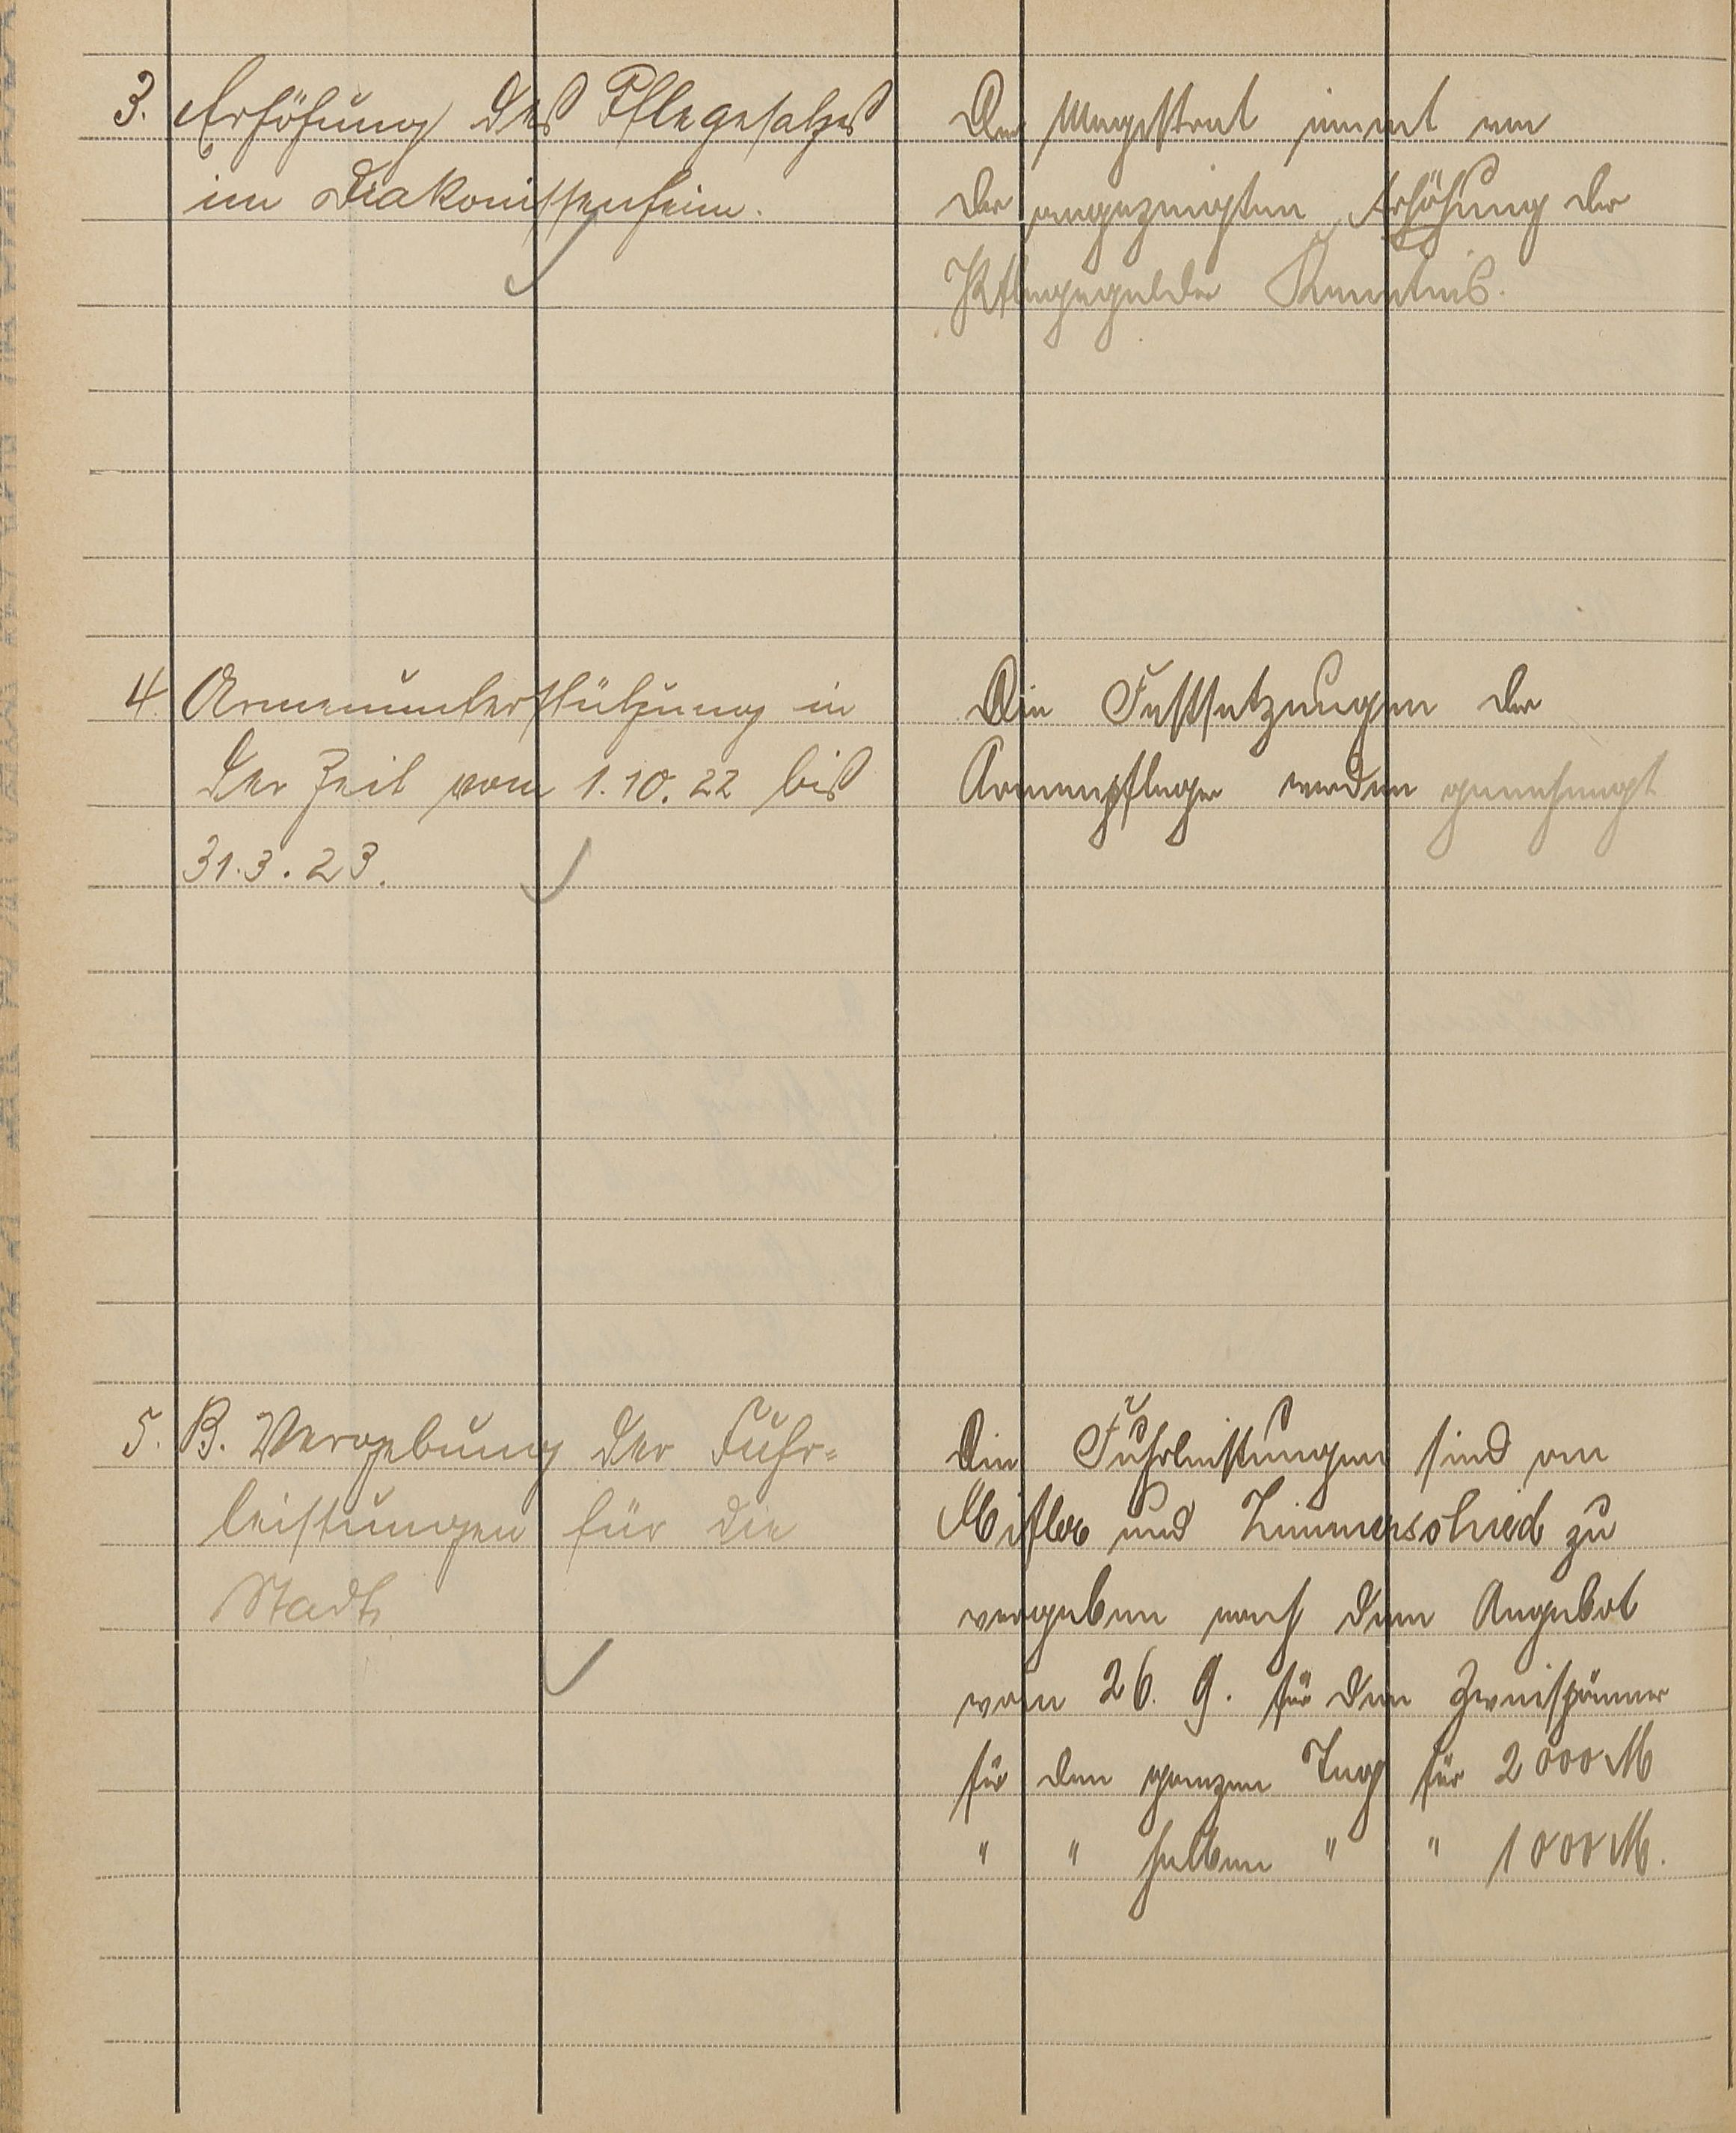 3. Erhöhung des Pflegesatzes
im Diakonissenheim.
Der Magistrat nimmt von
der angezeigten Erhöhung der
Pflegegelder Kenntnis.
4. Armenunterstützung in
der Zeit vom 1.10.22 bis
31.3.23.
Die Festsetzungen der
Armenpfleger werden genehmigt
5. B. Vergebung der Fuhr-
leistungen für die
Stadt
Die Fuhrleistungen sind an
und Zimmerschied zu
vergeben nach dem Angebot
vom 26. 9. für den Zweispänner
für den ganzen Tag für 2000 M
" " halben " " 1000 M.